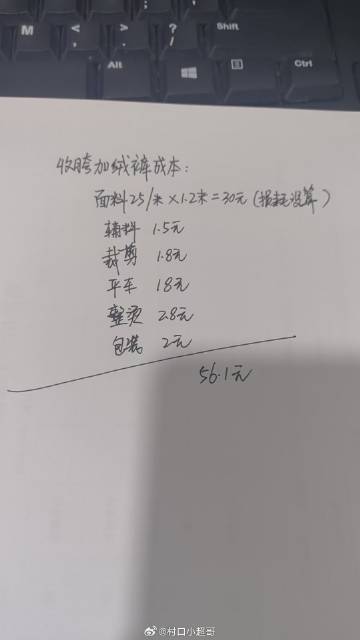 M
<
,
>
.
?
/
Shift
Alt
Ctrl
收胯加绒裤成本:
面料25/米×1.2米=30元(损耗没算)
辅料 1.5元
裁剪 1.8元
平车 18元
整烫 2.8元
包装 2元
56.1元
@村口小超哥